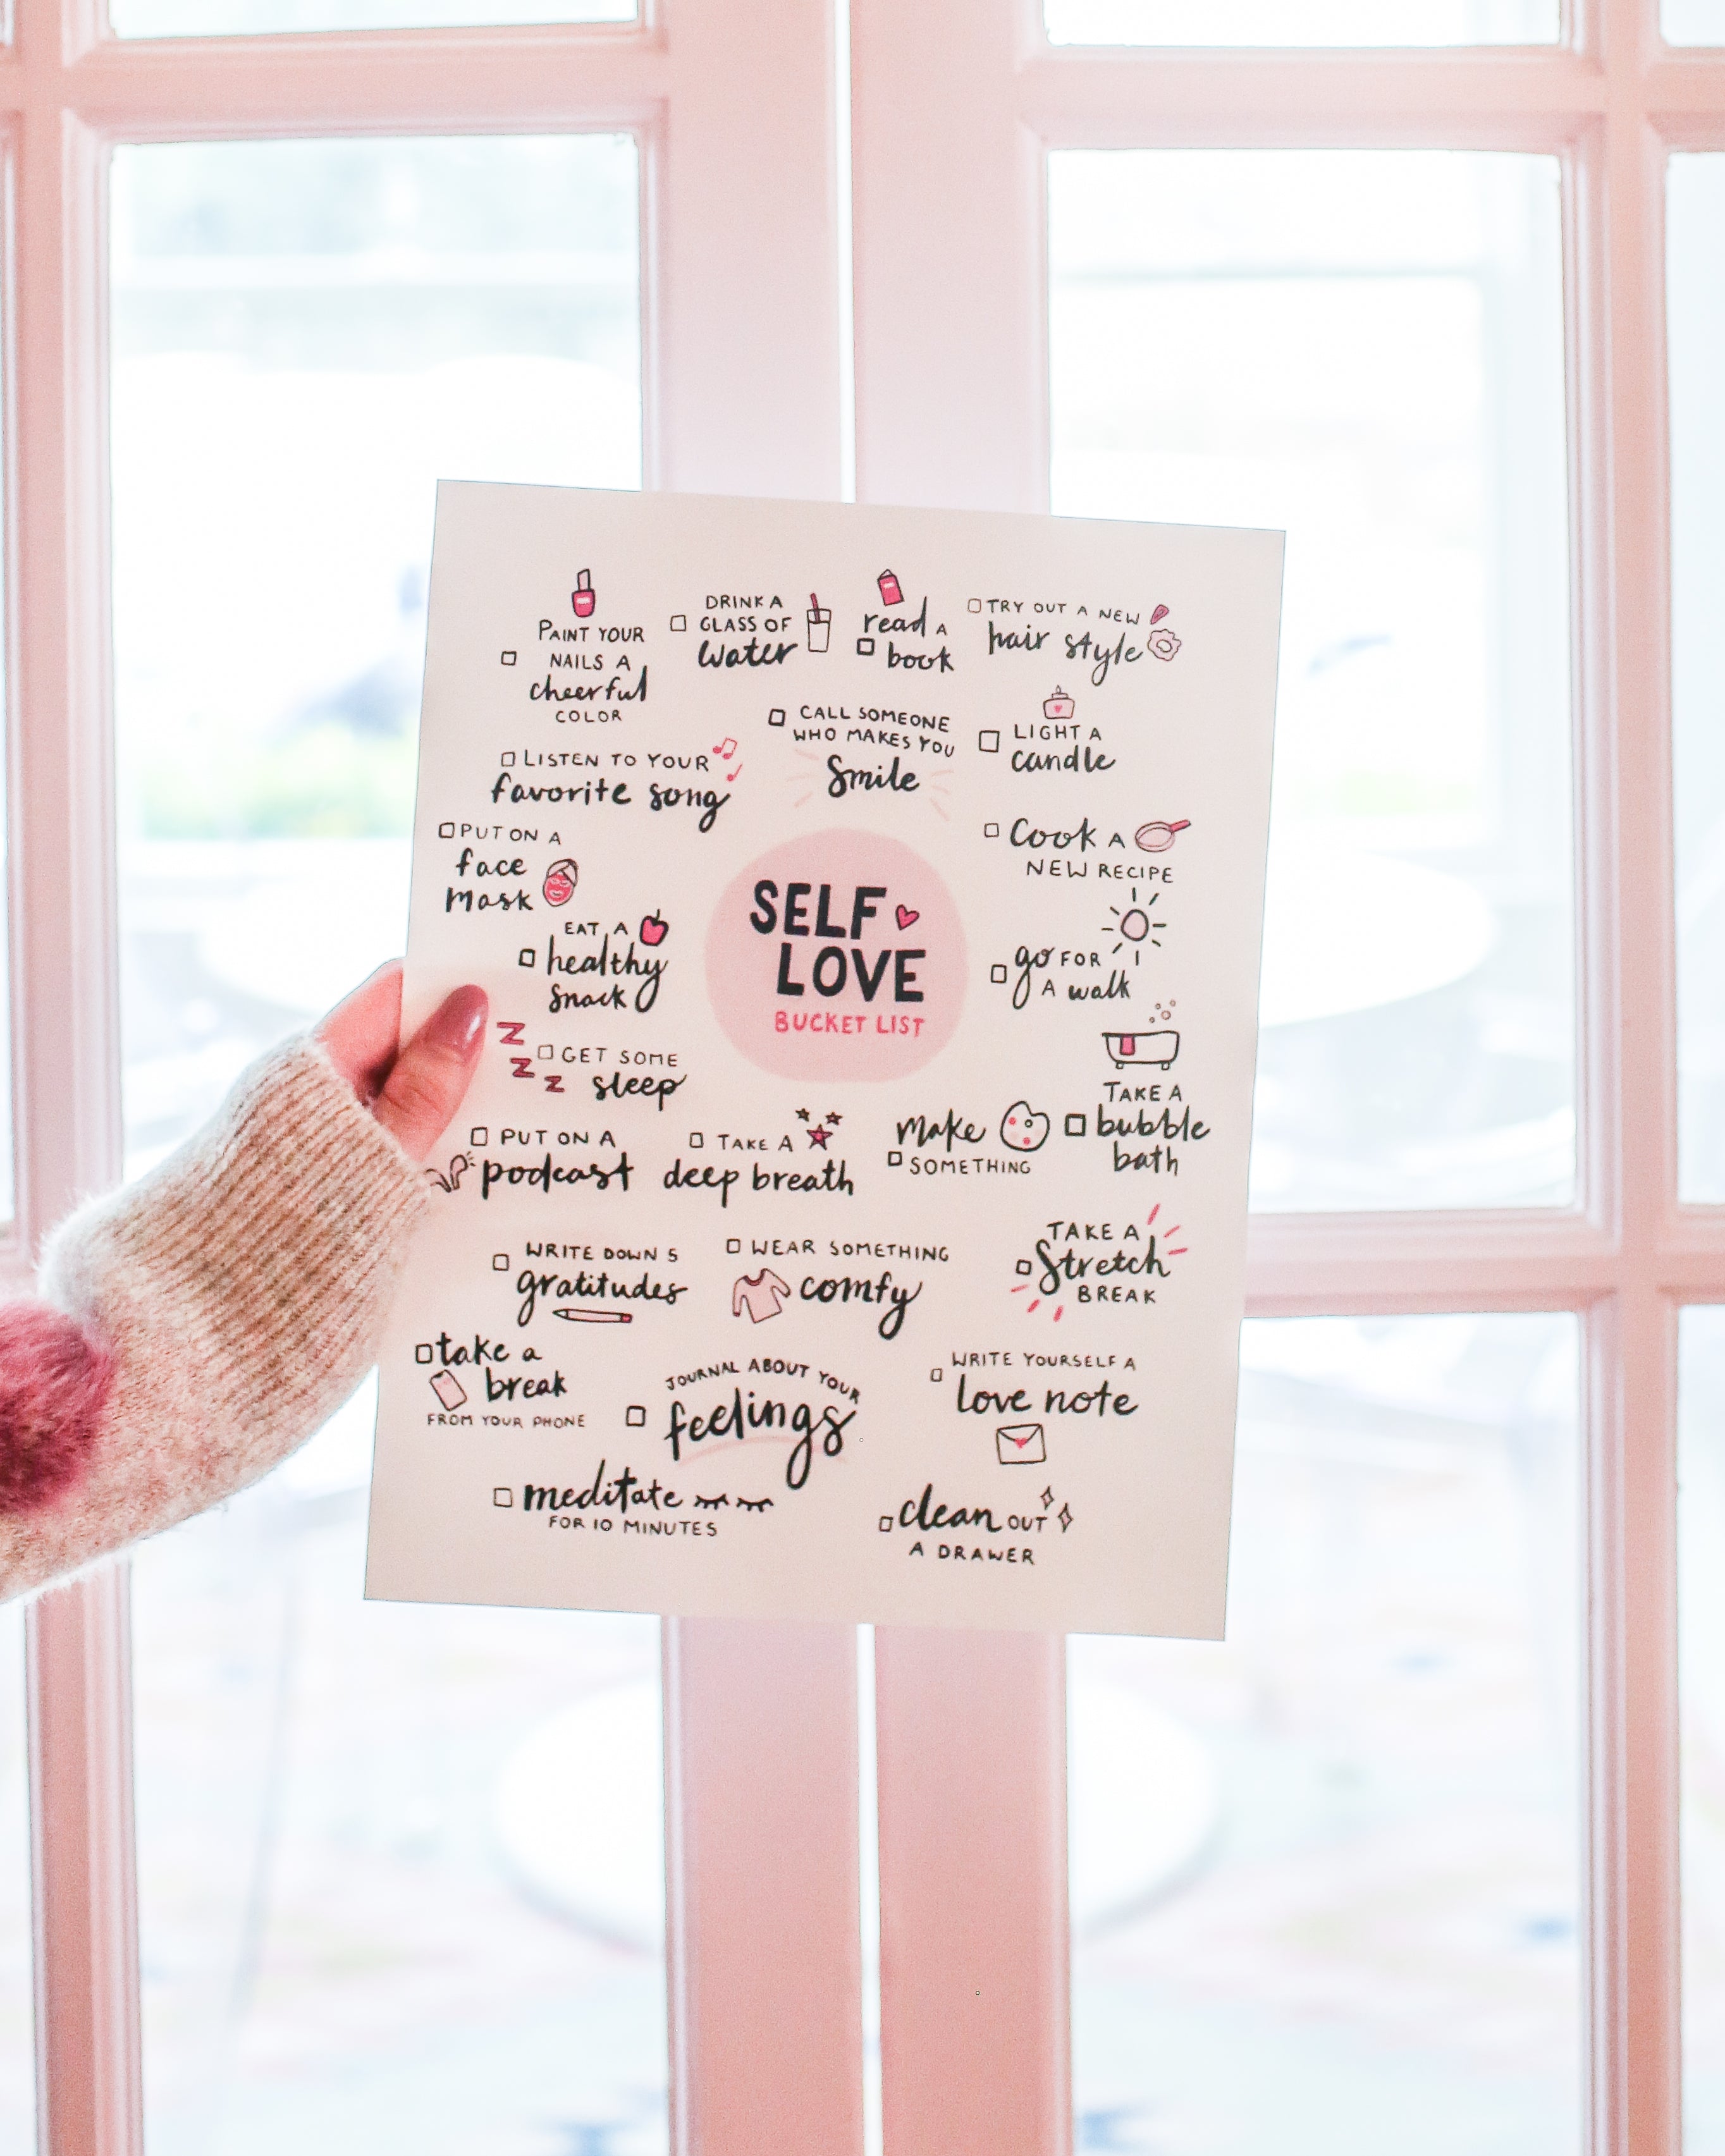 PAINT YOUR
NAILS A
cheerful
COLOR
DRINK A
GLASS OF
water
read A
book
TRY OUT A NEW
hair style
LISTEN TO YOUR
favorite song
CALL SOMEONE
WHO MAKES YOU
smile
LIGHT A
candle
PUT ON A
face
mask
EAT A
healthy
snack
SELF
LOVE
BUCKET LIST
COOK A
NEW RECIPE
go FOR
A walk
GET SOME
sleep
TAKE A
bubble
bath
PUT ON A
podcast
TAKE A
deep breath
make
SOMETHING
WRITE DOWN 5
gratitudes
WEAR SOMETHING
comfy
TAKE A
stretch
BREAK
take a
break
FROM YOUR PHONE
JOURNAL ABOUT YOUR
feelings
WRITE YOURSELF A
love note
meditate
FOR 10 MINUTES
clean OUT
A DRAWER